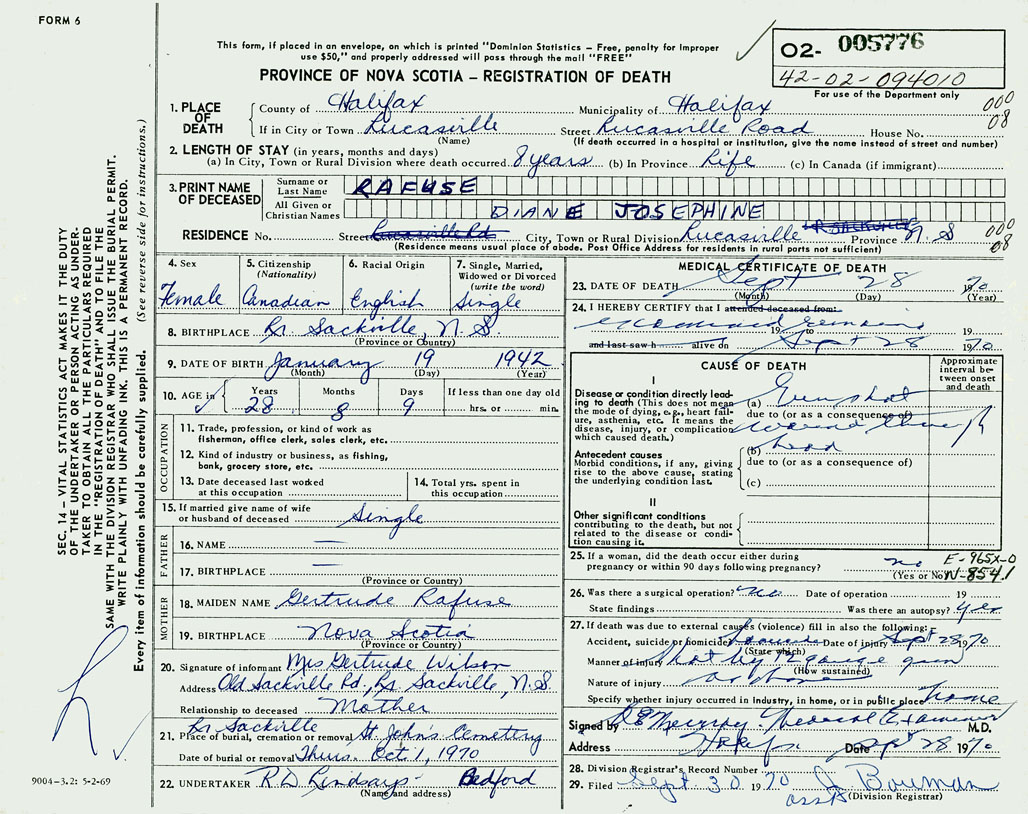 FORM 6
This form, if placed in an envelope, on which is printed "Dominion Statistics – Free, penalty for Improper
use $50," and properly addressed will pass through the mail "FREE"
PROVINCE OF NOVA SCOTIA – REGISTRATION OF DEATH
02- 005776
42-02-094010
For use of the Department only
000
08
1. PLACE OF DEATH
County of Halifax Municipality of Halifax
If in City or Town Lucasville Street Lucasville Road House No.
(Name) (If death occurred in a hospital or institution, give the name instead of street and number)
2. LENGTH OF STAY (in years, months and days)
(a) In City, Town or Rural Division where death occurred 8 years (b) In Province Life (c) In Canada (if immigrant)
3. PRINT NAME OF DECEASED
Surname or Last Name RAFUSE
All Given or Christian Names DIANE JOSEPHINE
RESIDENCE No. Street Lucasville Rd City, Town or Rural Division Lucasville Province N.S
(Residence means usual place of abode. Post Office Address for residents in rural parts not sufficient)
000
08
4. Sex Female
5. Citizenship (Nationality) Canadian
6. Racial Origin English
7. Single, Married, Widowed or Divorced (write the word) Single
8. BIRTHPLACE Lr. Sackville, N.S.
(Province or Country)
9. DATE OF BIRTH January 19 1942
(Month) (Day) (Year)
10. AGE in Years 28 Months 8 Days 9 If less than one day old hrs. or min.
OCCUPATION
11. Trade, profession, or kind of work as
fisherman, office clerk, sales clerk, etc.
12. Kind of industry or business, as fishing,
bank, grocery store, etc.
13. Date deceased last worked
at this occupation
14. Total yrs. spent in
this occupation
15. If married give name of wife
or husband of deceased Single
FATHER
16. NAME —
17. BIRTHPLACE —
(Province or Country)
MOTHER
18. MAIDEN NAME Gertrude Rafuse
19. BIRTHPLACE Nova Scotia
(Province or Country)
20. Signature of informant Mrs Gertrude Wilson
Address Old Sackville Rd., Lr. Sackville, N.S.
Relationship to deceased Mother
Lr Sackville
21. Place of burial, cremation or removal St John's Cemetery
Date of burial or removal Thurs. Oct 1, 1970
22. UNDERTAKER R.D. Lindsays - Bedford
(Name and address)
MEDICAL CERTIFICATE OF DEATH
23. DATE OF DEATH Sept 28 1970
(Month) (Day) (Year)
24. I HEREBY CERTIFY that I attended deceased from:
examined remains 19
19 to
and last saw h alive on Sept 28 1970
CAUSE OF DEATH
Approximate interval between onset and death
I
Disease or condition directly leading to death (This does not mean the mode of dying, e.g., heart failure, asthenia, etc. It means the disease, injury, or complication which caused death.)
(a) Gunshot
due to (or as a consequence of)
wound
(b) head
Antecedent causes
Morbid conditions, if any, giving rise to the above cause, stating the underlying condition last.
due to (or as a consequence of)
(c)
II
Other significant conditions
contributing to the death, but not related to the disease or condition causing it.
25. If a woman, did the death occur either during
pregnancy or within 90 days following pregnancy? no
(Yes or No)
E-965X-0
N-854.1
26. Was there a surgical operation? no Date of operation 19
State findings Was there an autopsy? yes
27. If death was due to external causes (violence) fill in also the following:
Accident, suicide or homicide Date of injury Sept 28 1970
(State which)
Manner of injury Shot by 12 gauge gun
(How sustained)
Nature of injury as above
Specify whether injury occurred in industry, in home, or in public place home
Signed by Medical Examiner M.D.
Address Date Sept 28 1970
28. Division Registrar's Record Number
29. Filed Sept 30 1970 J Bauman
asst (Division Registrar)
SEC. 14 – VITAL STATISTICS ACT MAKES IT THE DUTY
OF THE UNDERTAKER OR PERSON ACTING AS UNDERTAKER TO OBTAIN ALL THE PARTICULARS REQUIRED
IN THE "REGISTRATION OF DEATH" AND TO FILE THE
SAME WITH THE DIVISION REGISTRAR WHO SHALL ISSUE THE BURIAL PERMIT.
WRITE PLAINLY WITH UNFADING INK. THIS IS A PERMANENT RECORD.
Every item of information should be carefully supplied. (See reverse side for instructions.)
9004-3.2: 5-2-69